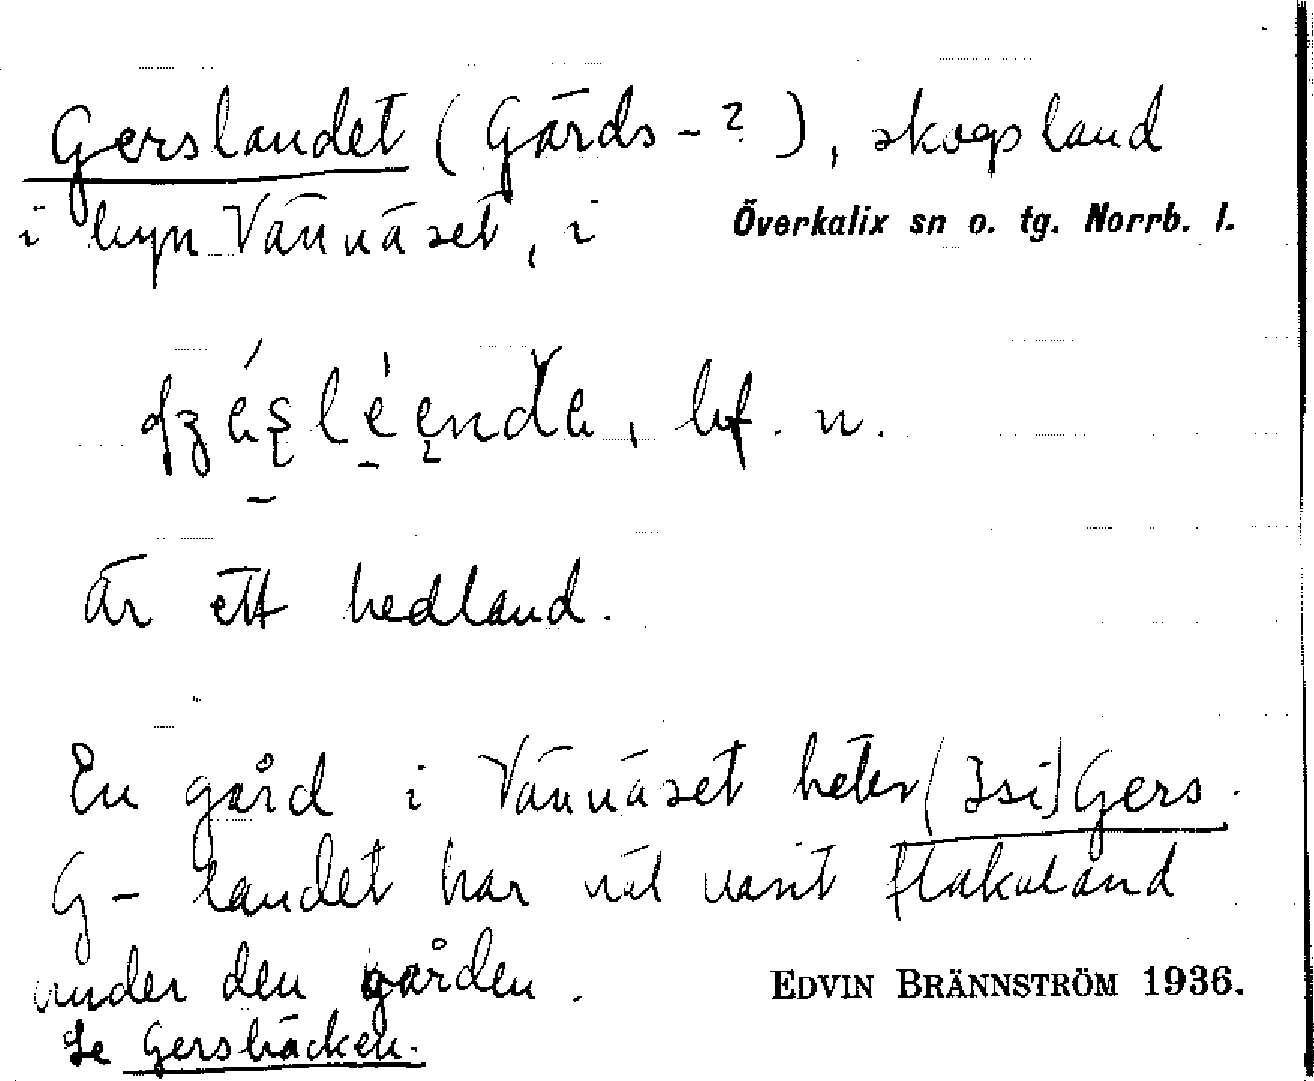 Gerslandet (Gärds-?), skogsland
i byn Vännäset, i Överkalix sn o. tg. Norrb. l.
bf. n.
Är ett hedland.
En gård i Vännäset heter (Isi) Gers.
G-landet har väl varit flakaland
under den gården.
EDVIN BRÄNNSTRÖM 1936.
Se Gersbäcken.